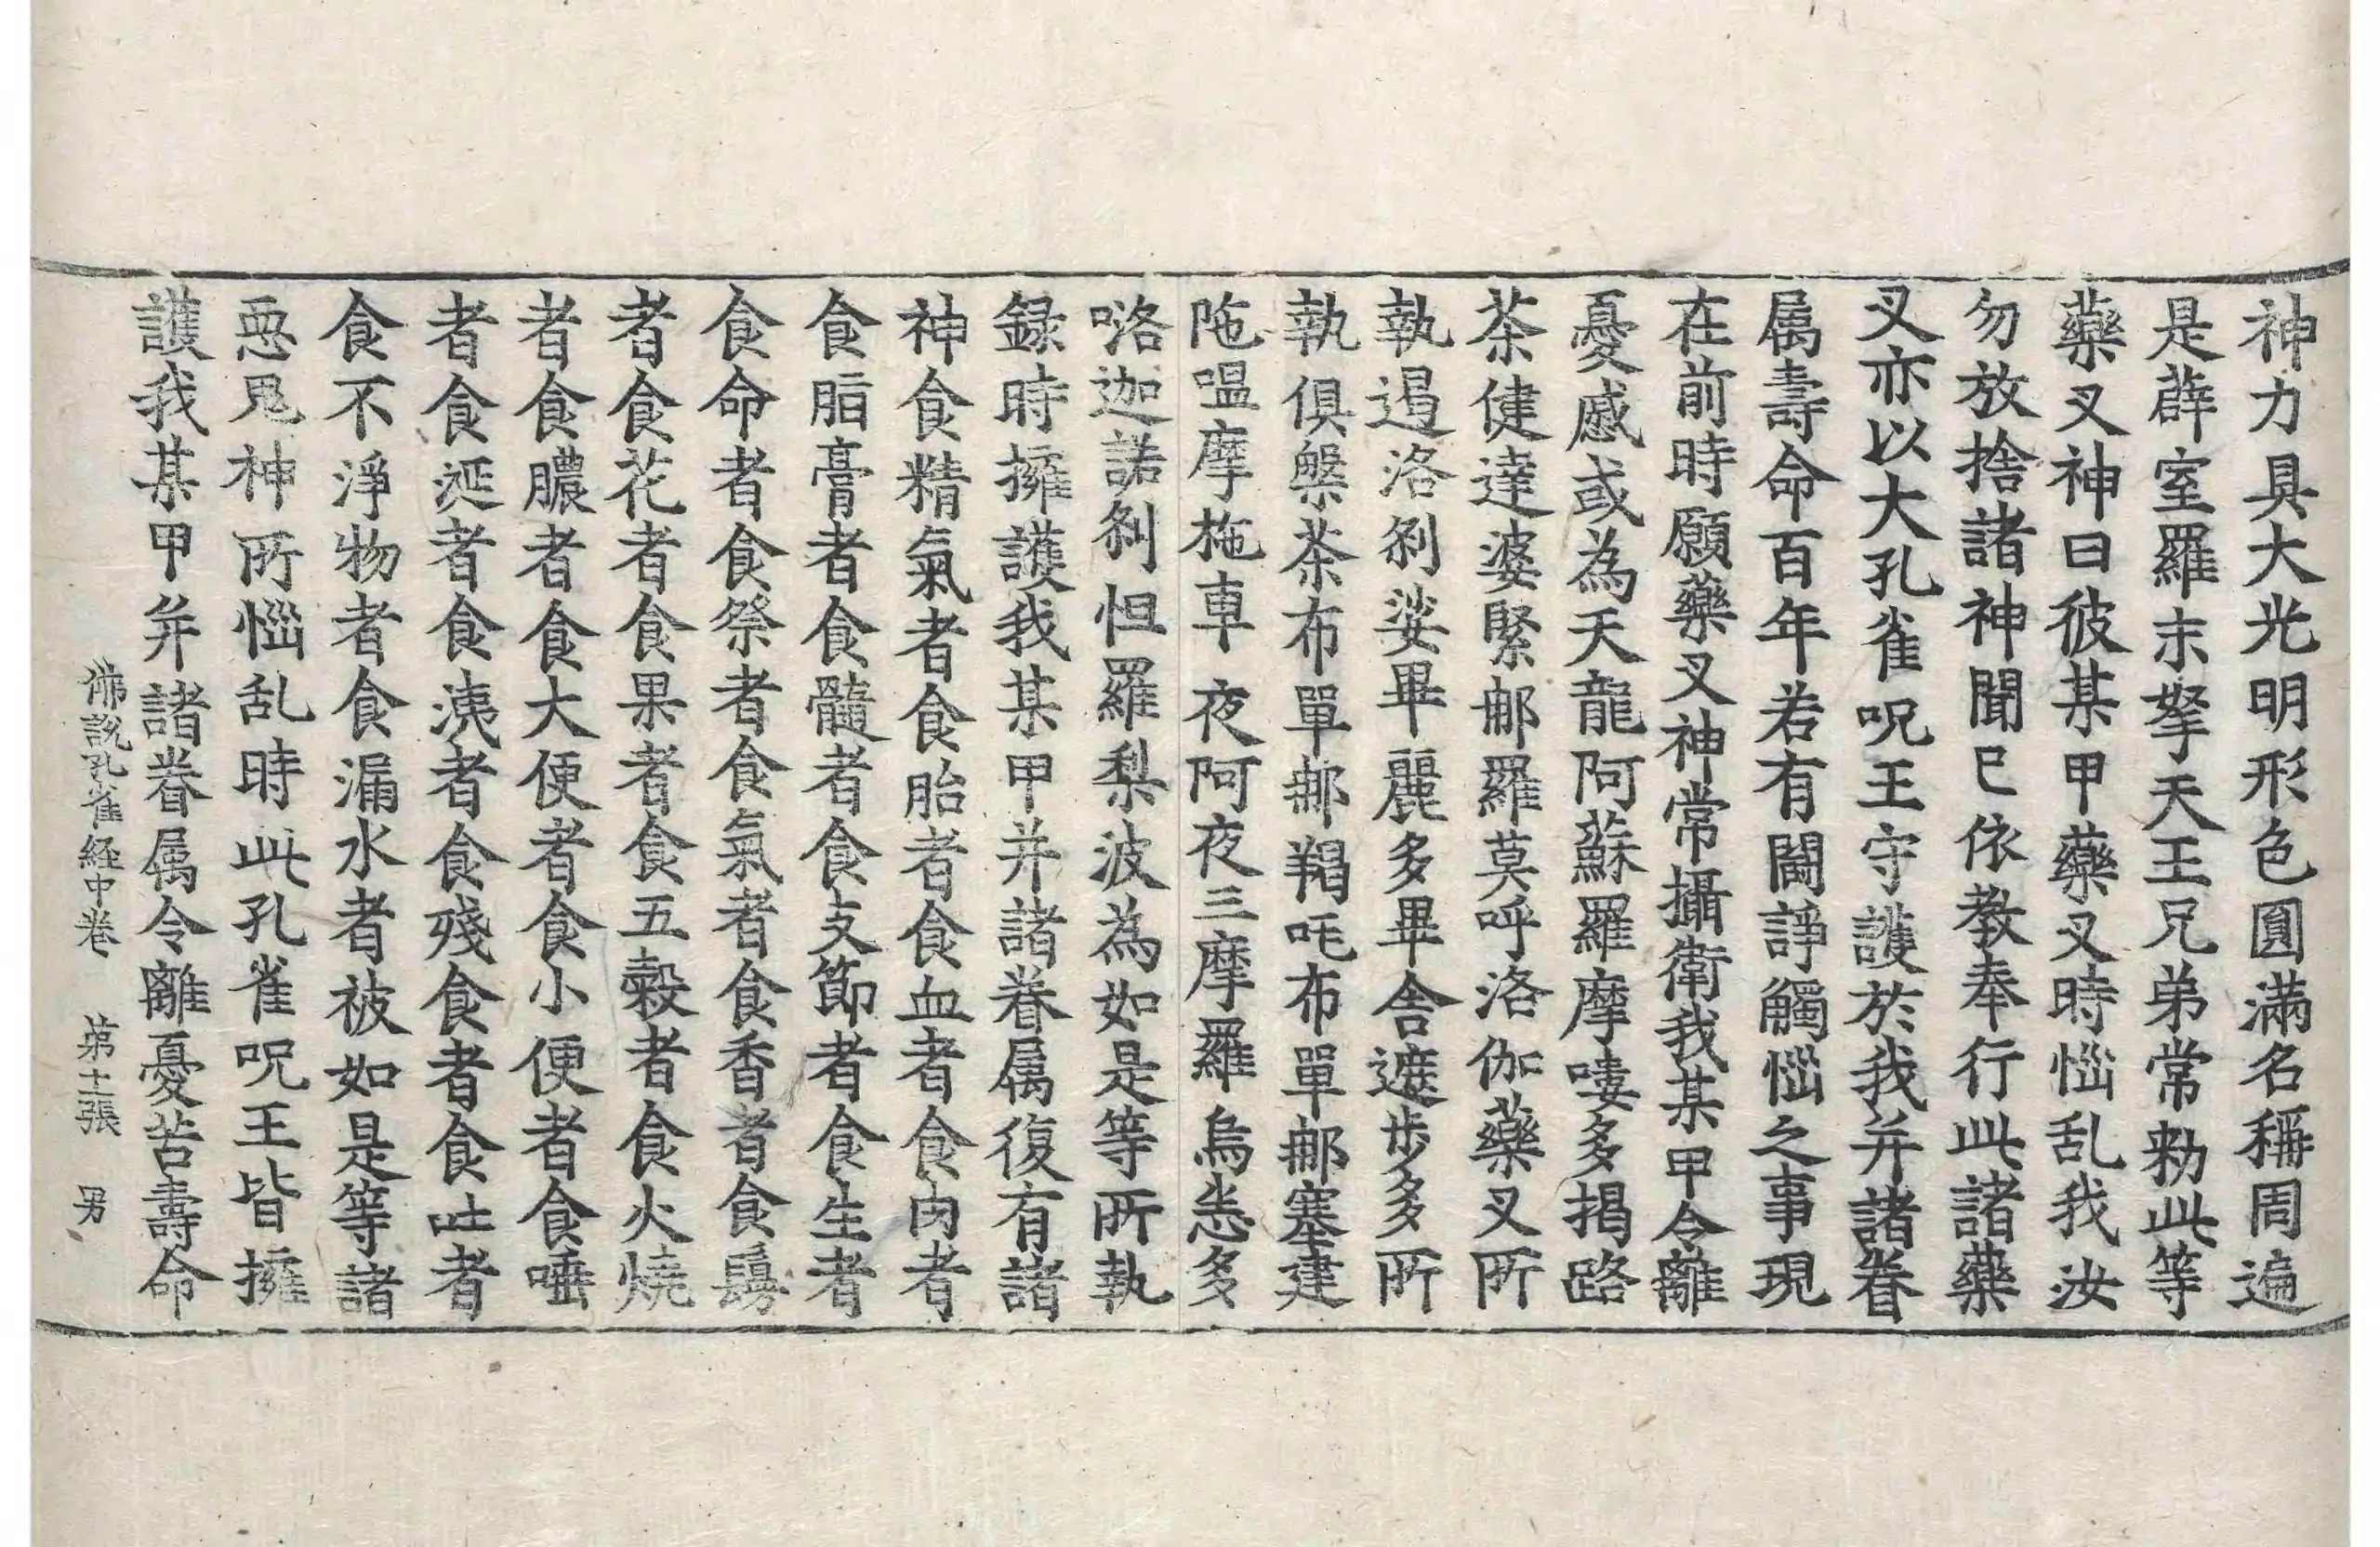 神力具大光明形色圓滿名稱周遍
是薜室羅末拏天王兄弟常勑此等
藥叉神曰彼某甲藥叉時惱乱我汝
勿放捨諸神聞已依教奉行此諸藥
叉亦以大孔雀呪王守護於我并諸眷
属壽命百年若有鬪諍觸惱之事現
在前時願藥叉神常攝衛我某甲令離
憂慼或為天龍阿蘇羅摩嘍多揭路
茶健達婆緊郍羅莫呼洛伽藥叉所
執遏洛剎娑畢麗多畢舍遮步多所
執俱槃茶布單郍羯吒布單郍塞建
陁嗢摩柂車夜阿夜三摩羅烏悉多
咯迦諾剎怛羅梨波為如是等所執
録時擁護我某甲并諸眷属復有諸
神食精氣者食胎者食血者食肉者
食脂膏者食髓者食支節者食生者
食命者食祭者食氣者食香者食鬘
者食花者食果者食五穀者食火燒
者食膿者食大便者食小便者食唾
者食涎者食洟者食殘食者食吐者
食不淨物者食漏水者被如是等諸
惡鬼神所惱乱時此孔雀呪王皆擁
護我某甲并諸眷属令離憂苦壽命
佛說孔雀経中卷 第十二張 男